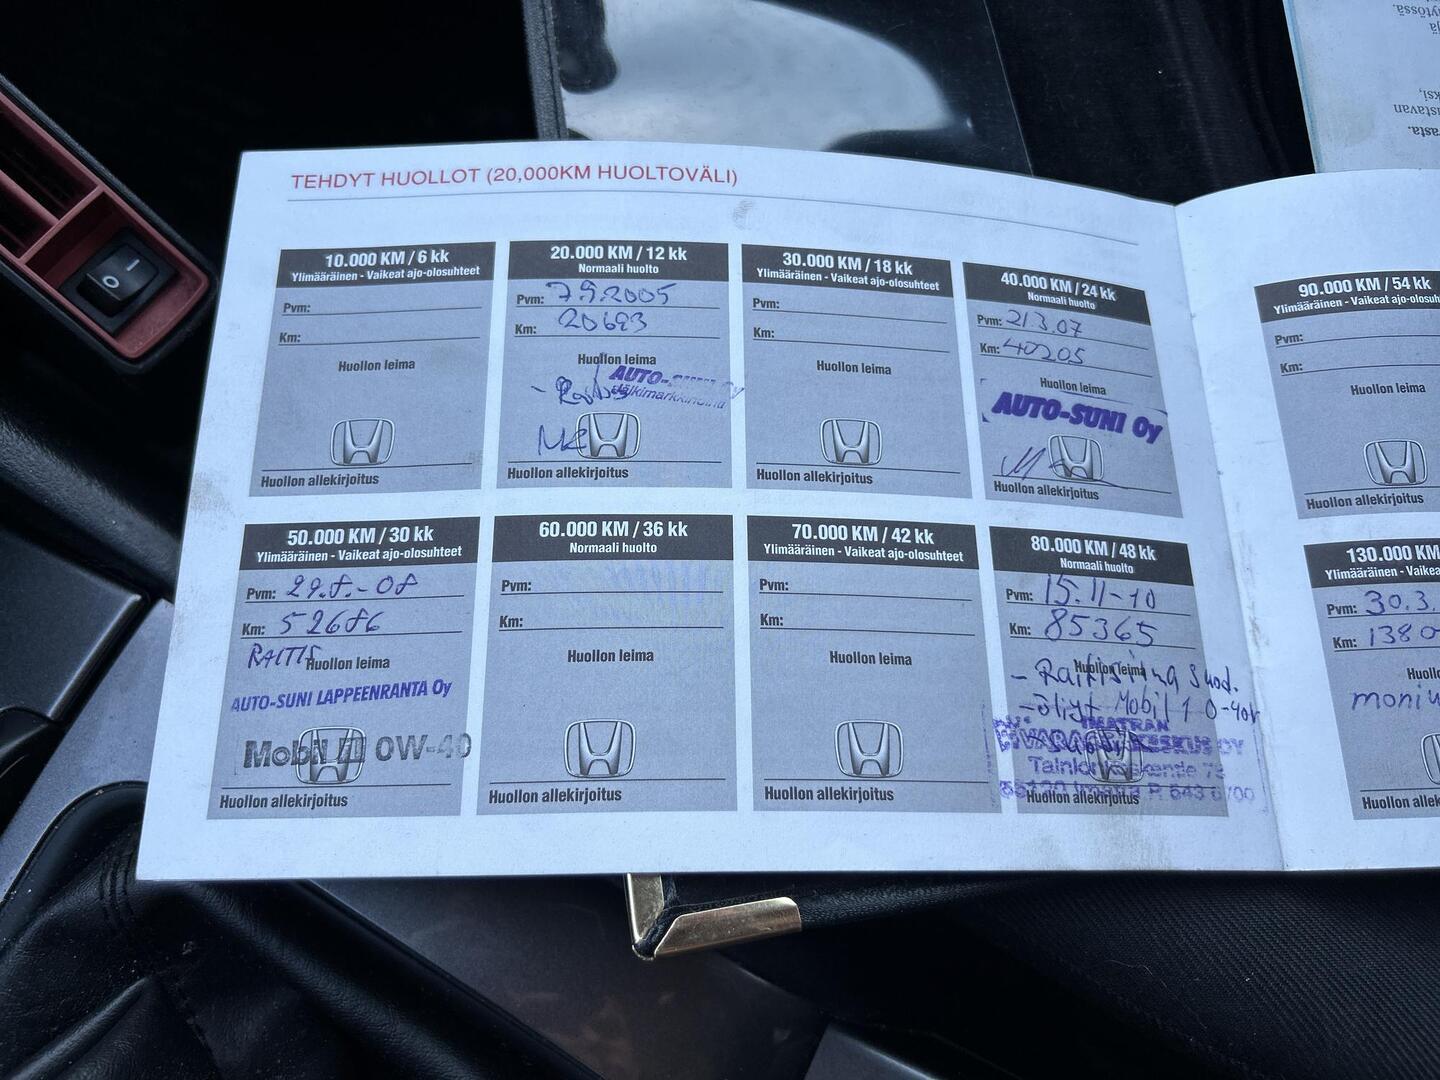 TEHDYT HUOLLOT (20,000KM HUOLTOVÄLI)
10.000 KM / 6 kk
Ylimääräinen - Vaikeat ajo-olosuhteet
Pvm:
Km:
Huollon leima
Huollon allekirjoitus
20.000 KM / 12 kk
Normaali huolto
Pvm: 7.9.2005
Km: 20683
Huollon leima
AUTO-SUNI Oy
Jälkimarkkinointi
Huollon allekirjoitus
30.000 KM / 18 kk
Ylimääräinen - Vaikeat ajo-olosuhteet
Pvm:
Km:
Huollon leima
Huollon allekirjoitus
40.000 KM / 24 kk
Normaali huolto
Pvm: 21.3.07
Km: 40205
Huollon leima
AUTO-SUNI Oy
Huollon allekirjoitus
50.000 KM / 30 kk
Ylimääräinen - Vaikeat ajo-olosuhteet
Pvm: 29.8.-08
Km: 52686
RAITIS
Huollon leima
AUTO-SUNI LAPPEENRANTA Oy
Mobil 1 0W-40
Huollon allekirjoitus
60.000 KM / 36 kk
Normaali huolto
Pvm:
Km:
Huollon leima
Huollon allekirjoitus
70.000 KM / 42 kk
Ylimääräinen - Vaikeat ajo-olosuhteet
Pvm:
Km:
Huollon leima
Huollon allekirjoitus
80.000 KM / 48 kk
Normaali huolto
Pvm: 15.11-10
Km: 85365
Huollon leima
- Raitisilma suod.
- öljyt Mobil 1 0-40W
IMATRAN
VARAOSAKESKUS OY
Tainionkoskentie 73
Huollon allekirjoitus
90.000 KM / 54 kk
Ylimääräinen - Vaikeat ajo-olosuh
Pvm:
Km:
Huollon leima
Huollon allekirjoitus
130.000 KM
Ylimääräinen - Vaikea
Pvm: 30.3.
Km: 1380
Huollo
Huollon alle